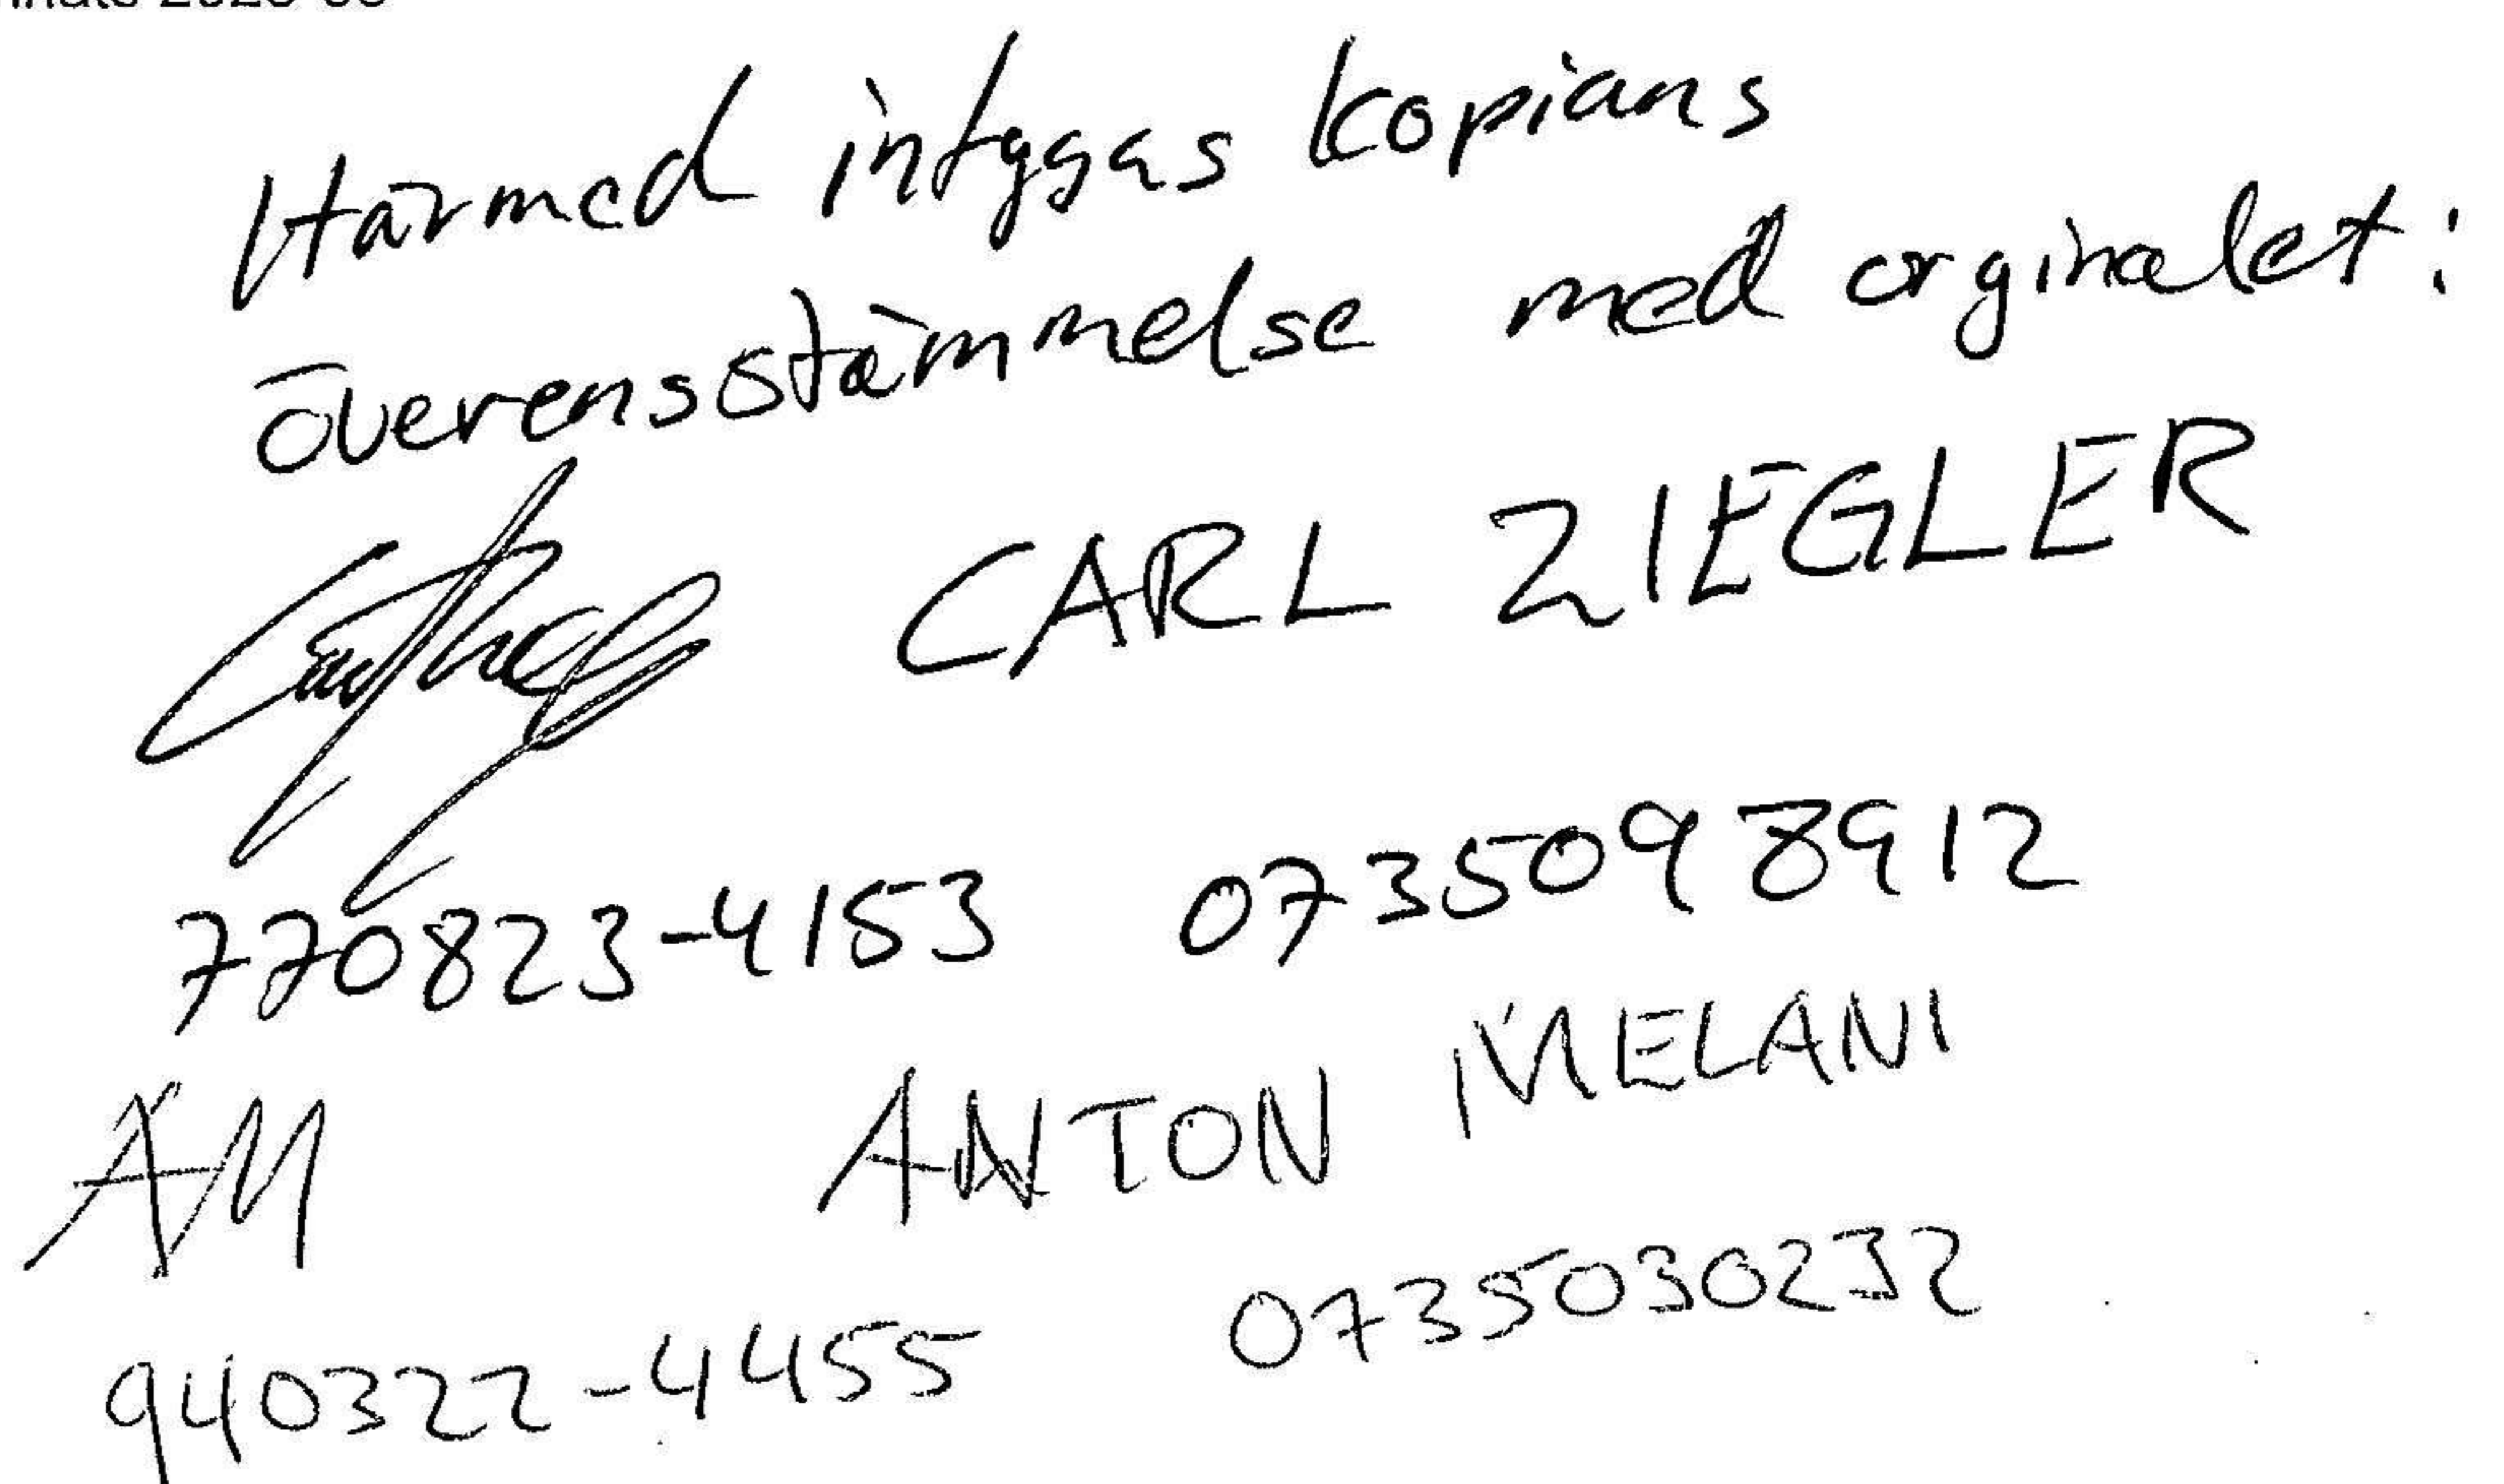 Härmed intygas kopians
överensstämmelse med orginalet:
CARL ZIEGLER
770823-4153 0735098912
AM ANTON MELANI
940322-4455 0735030232